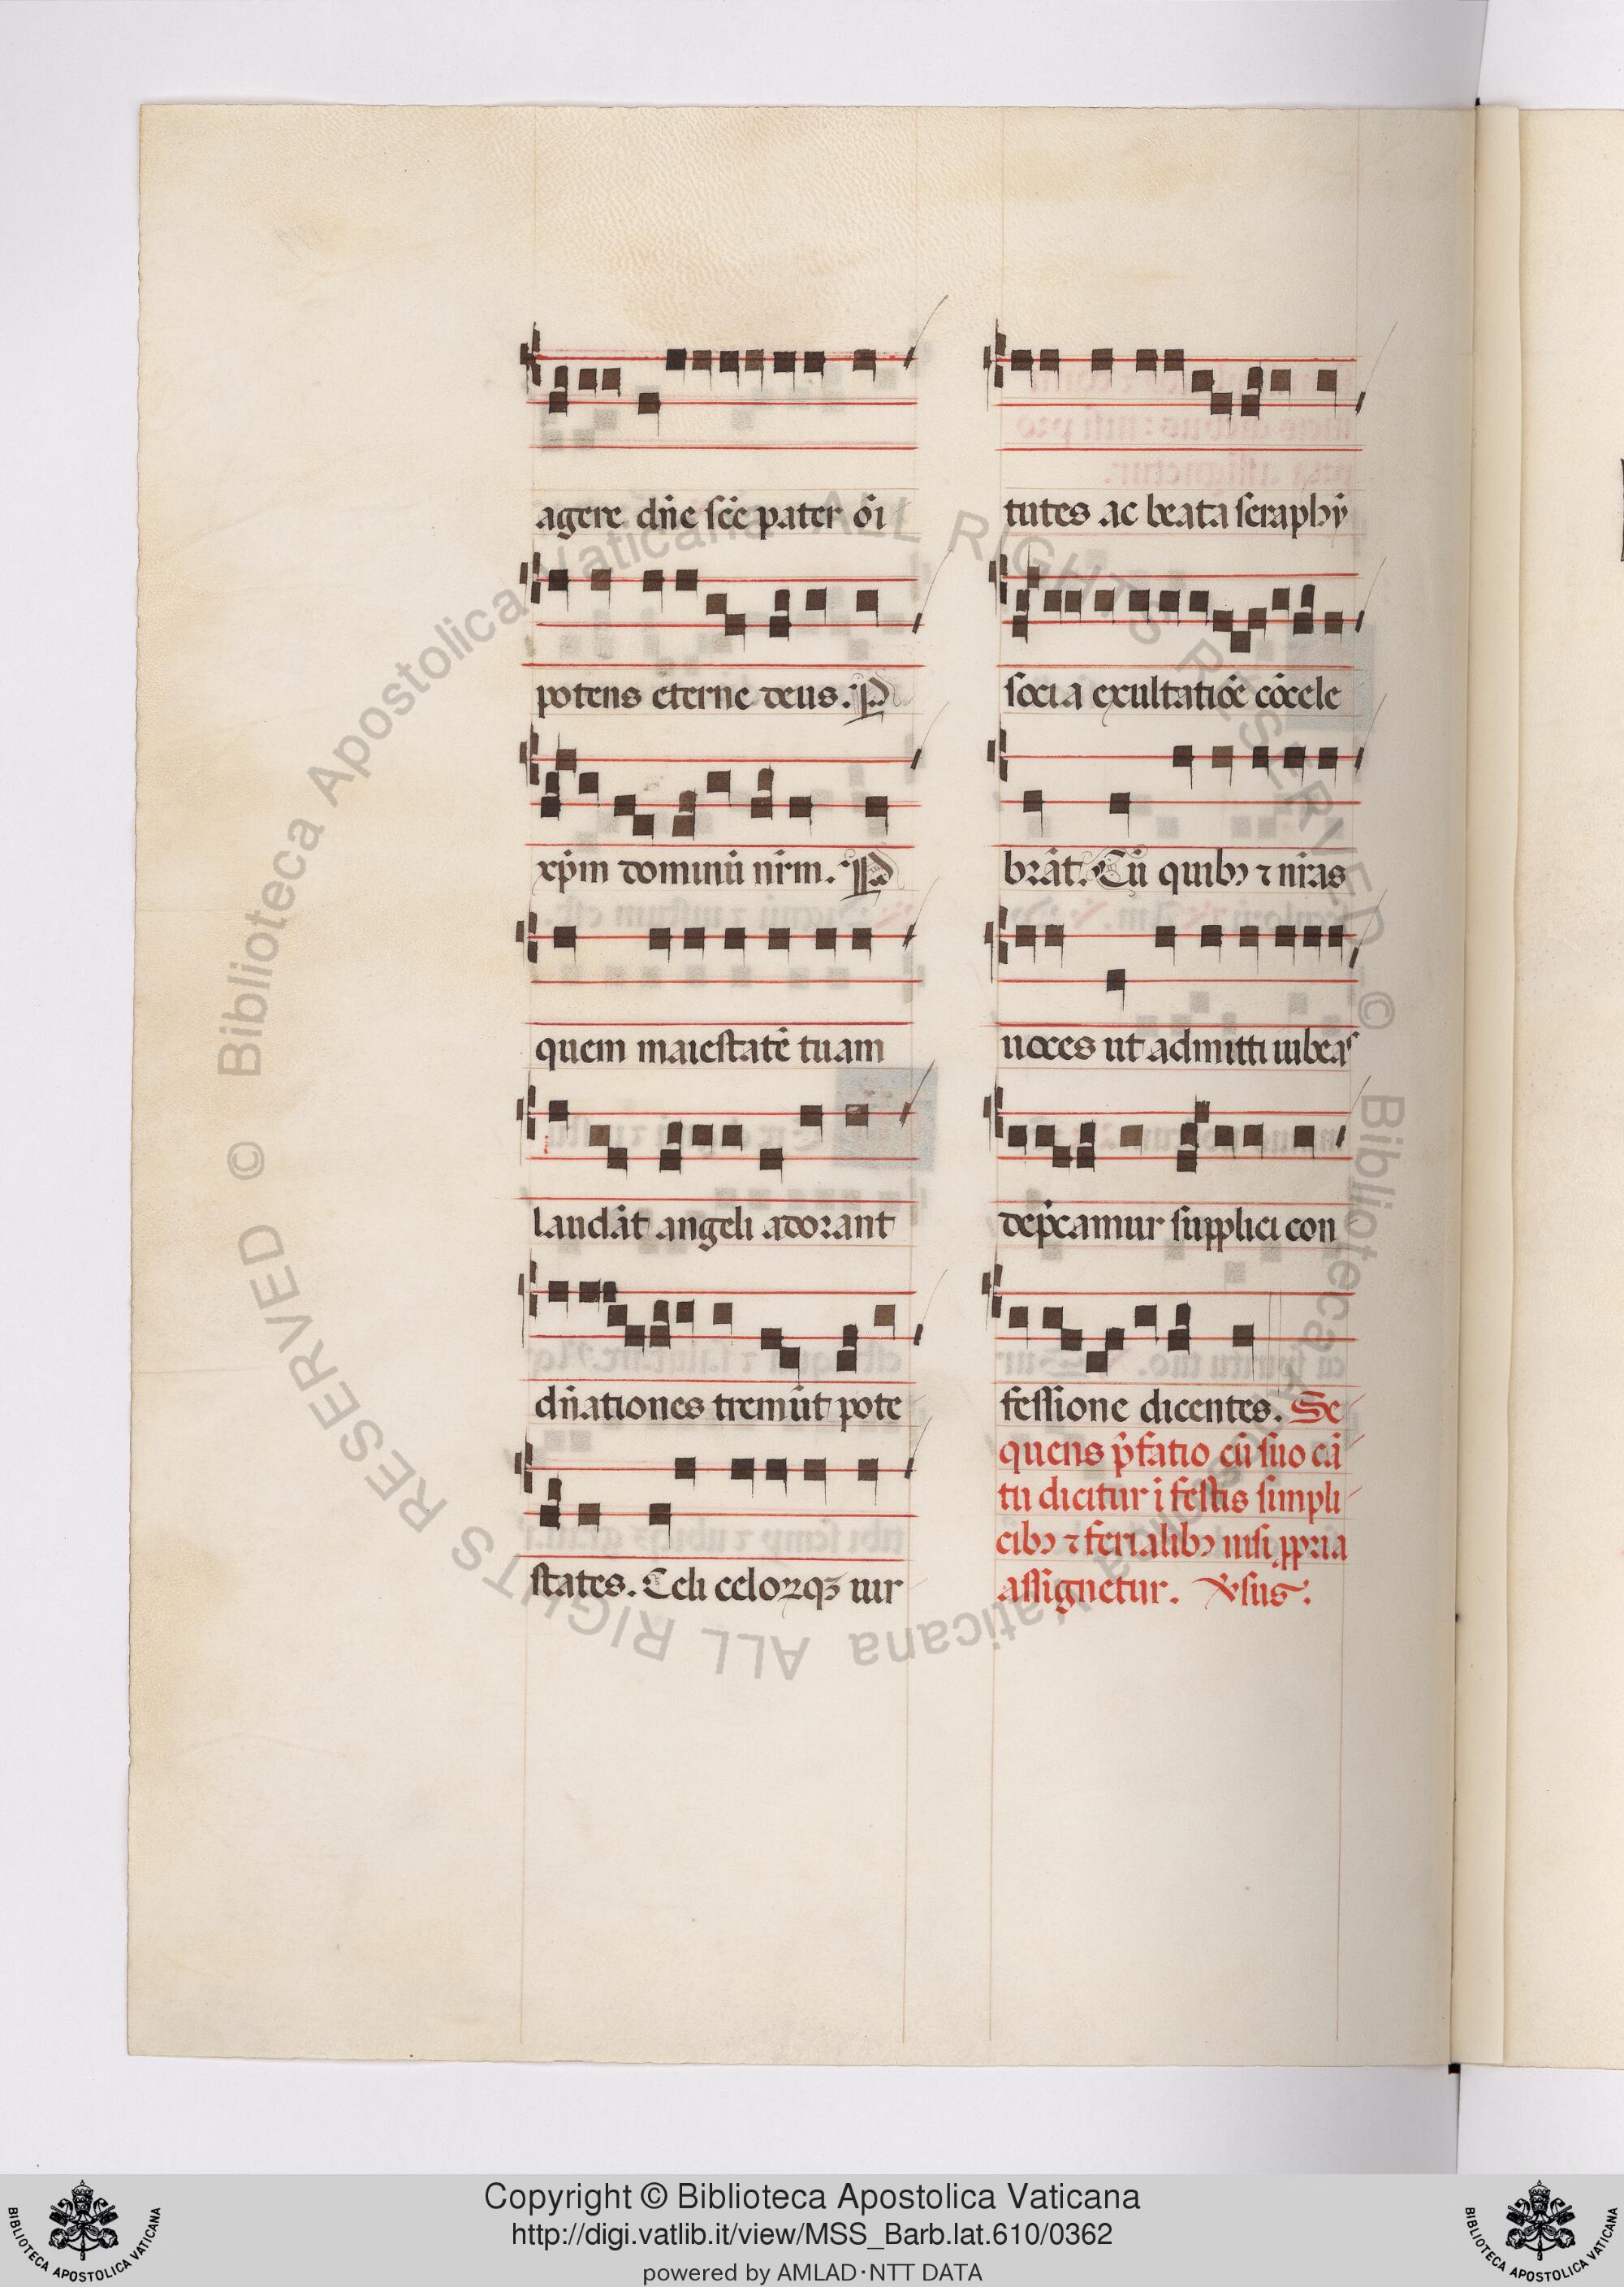 agere dn̄e sc̄e pater oı̄
potens eterne deus. P
xp̄m dominū nr̄m. P
quem maiestatē tuam
laudāt angeli adorant
dn̄ationes tremūt pote
states. Celi celoꝝqꝫ uir
tutes ac beata seraphȳ
socia exultatiōe cōcele
brāt. Cū quibꝰ ⁊ nr̄as
uoces ut admitti iubeas
dep̄camur supplici con
fessione dicentes. Se
quens p̄fatio cū suo cā
tu dicitur ī festis simpli
cibꝰ ⁊ ferialibꝰ nisi ꝓpria
assignetur. ℣sus.
© Biblioteca Apostolica Vaticana ALL RIGHTS RESERVED © Biblioteca Apostolica Vaticana ALL RIGHTS RESERVED
Copyright © Biblioteca Apostolica Vaticana
http://digi.vatlib.it/view/MSS_Barb.lat.610/0362
powered by AMLAD·NTT DATA
BIBLIOTECA APOSTOLICA VATICANA
BIBLIOTECA APOSTOLICA VATICANA